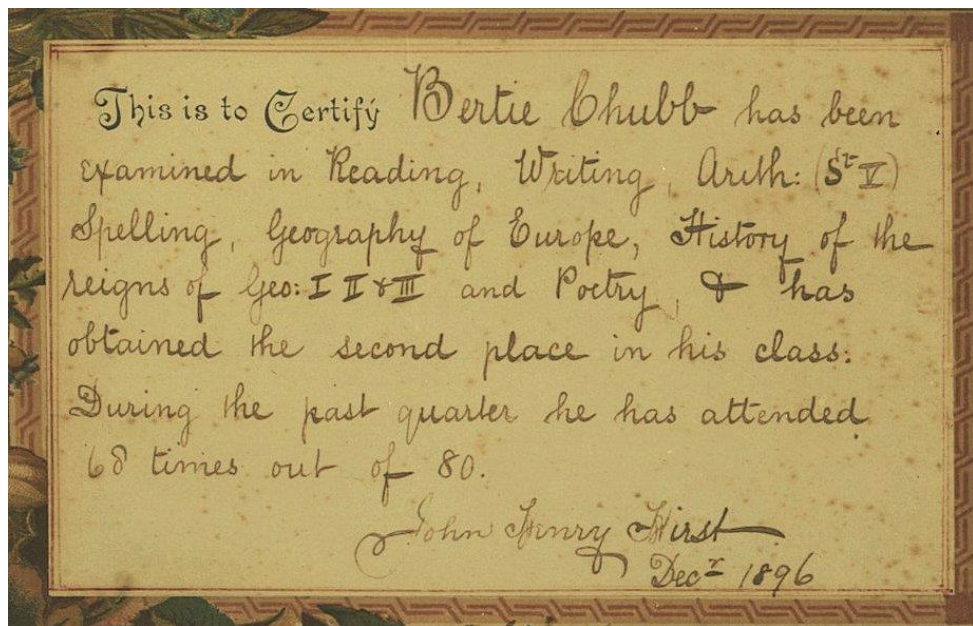 This is to Certify Bertie Chubb has been
examined in Reading, Writing, Arith: (St V)
Spelling, Geography of Europe, History of the
reigns of Geo: I II & III and Poetry, & has
obtained the second place in his class.
During the past quarter he has attended
68 times out of 80.
John Henry Hirst
Decr 1896